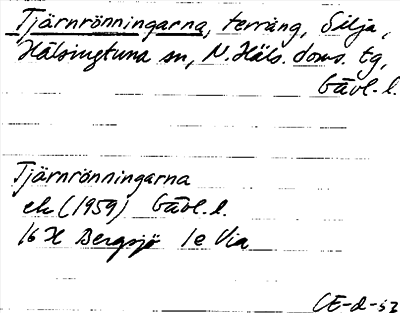 Tjärnrönningarna, terräng, Silja,
Hälsingtuna sn, N. Häls. doms. tg,
Gävl. l.
Tjärnrönningarna
ek (1959) Gävl. l.
16 H Bergsjö 1e Via
CE-d-